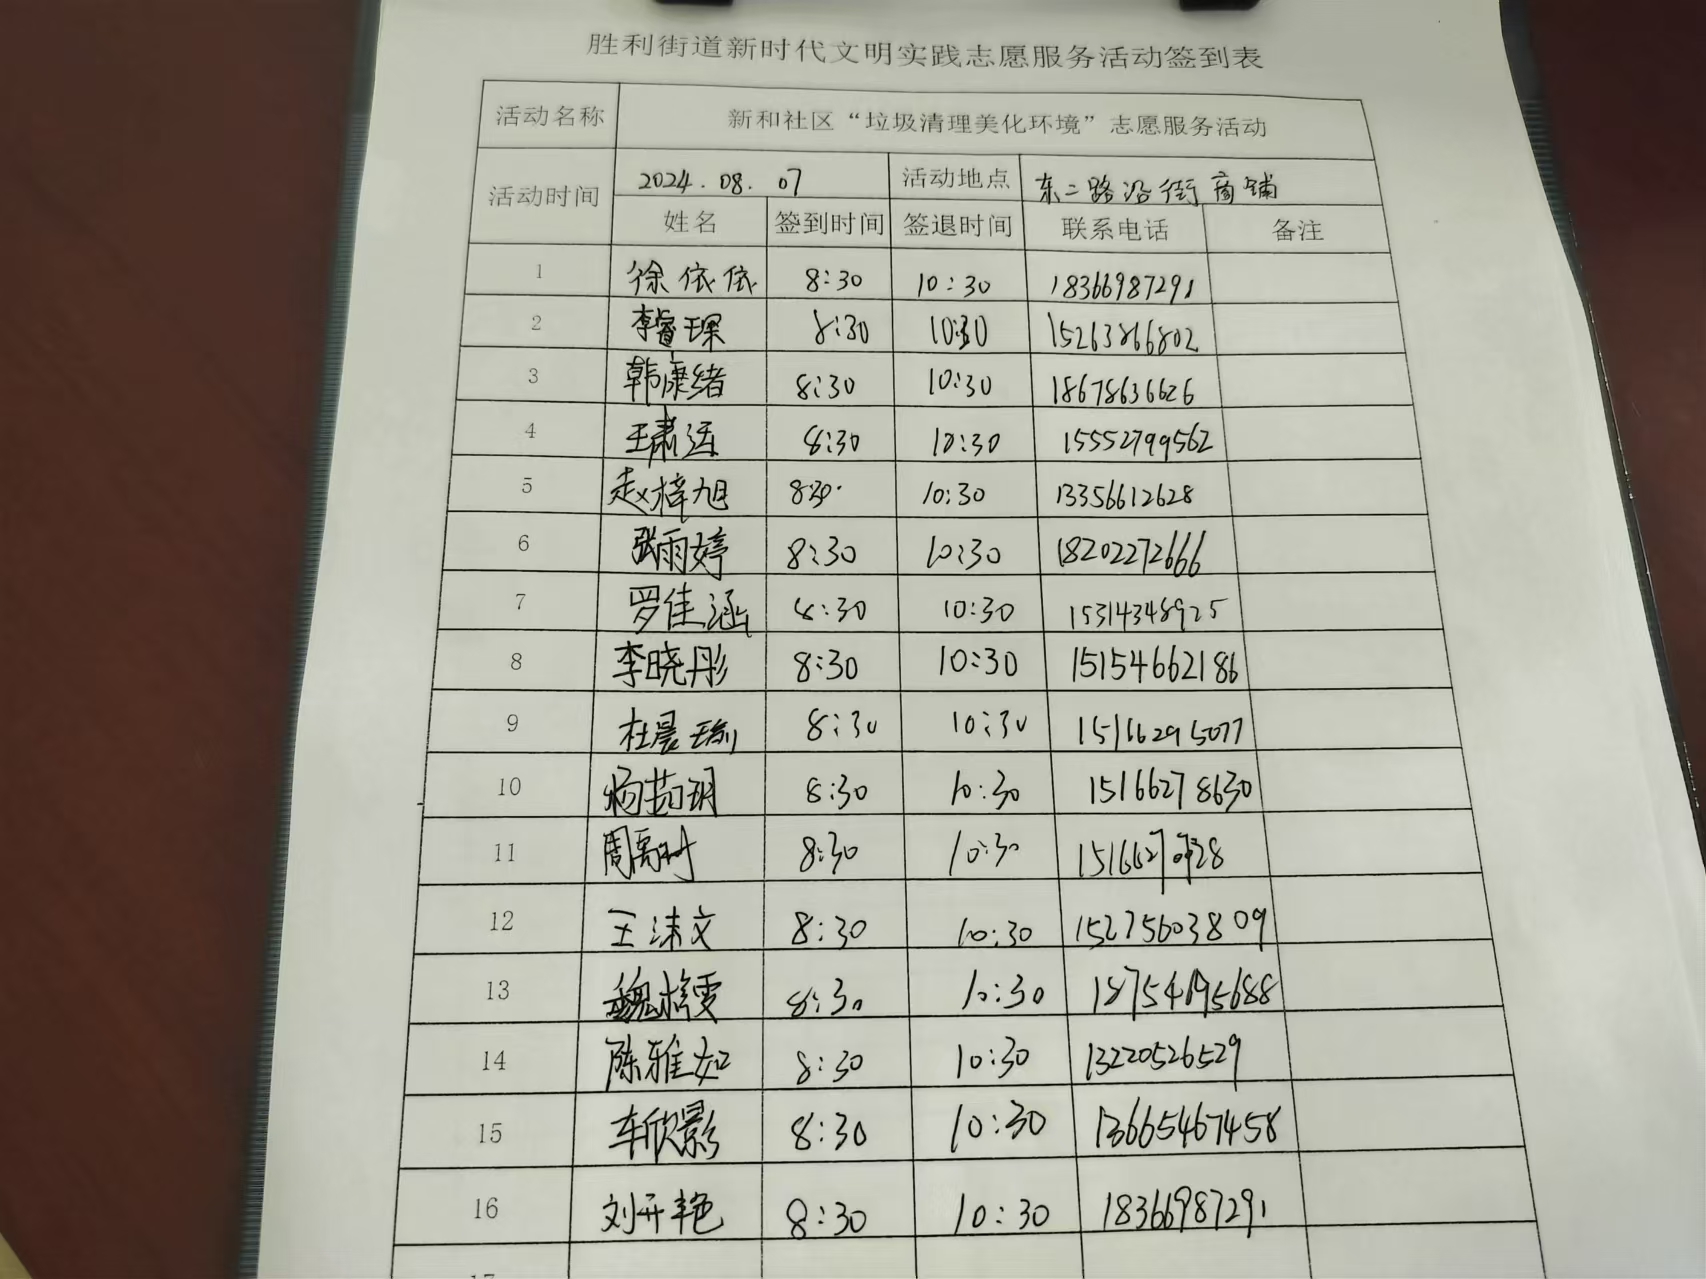 胜利街道新时代文明实践志愿服务活动签到表
活动名称 新和社区“垃圾清理美化环境”志愿服务活动
活动时间 2024.08.07 活动地点 东二路沿街商铺
姓名 签到时间 签退时间 联系电话 备注
1 徐依依 8:30 10:30 18366987291
2 李睿琛 8:30 10:30 15263866802
3 韩康绪 8:30 10:30 18678636626
4 王肃运 8:30 10:30 15552799562
5 赵梓旭 8:30 10:30 13356612628
6 张雨婷 8:30 10:30 18202272666
7 罗佳涵 8:30 10:30 15314348925
8 李晓彤 8:30 10:30 15154662186
9 杜晨瑜 8:30 10:30 15166295077
10 杨茹玥 8:30 10:30 15166278630
11 8:30 10:30
12 王沫文 8:30 10:30 15275603809
13 8:30 10:30 18754695688
14 陈雅如 8:30 10:30 13220526529
15 车欣影 8:30 10:30 13665467458
16 刘开艳 8:30 10:30 18366987291